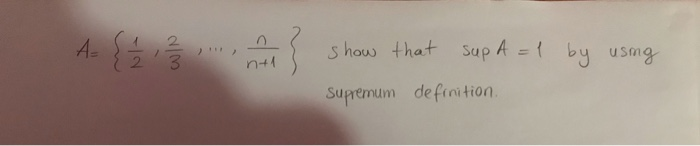 A= { 1/2 , 2/3 , ... , n/n+1 } show that sup A = 1 by using
supremum definition.